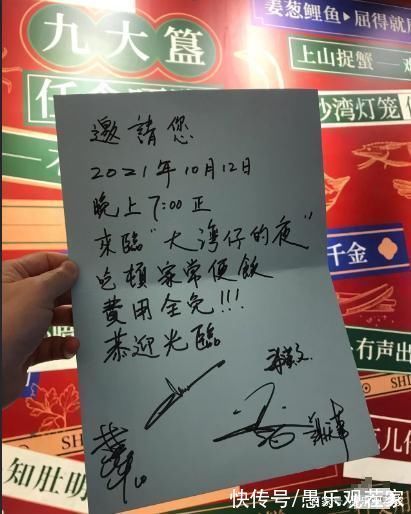 九大簋
姜葱鲤鱼
屈得就
上山捉蟹
沙湾灯笼
邀請您
2021年10月12日
晚上 7:00 正
來臨“大灣仔的夜”
吃頓家常便飲
費用全免!!!
恭迎光臨
千金
有声
知肚明
SHI
快传号/愚乐观茬家